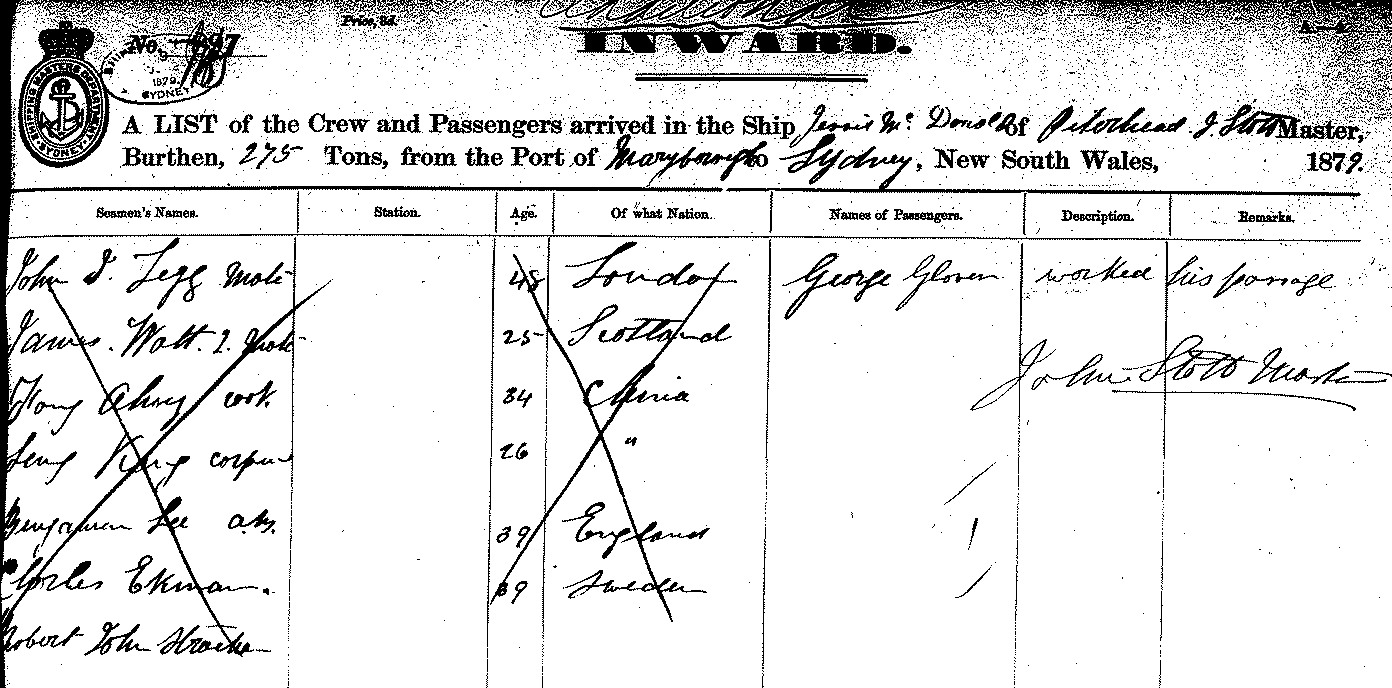 Price, 3d.
No.
SHIPPING MASTERS DEPARTMENT
SYDNEY
1879
SYDNEY
INWARD.
A LIST of the Crew and Passengers arrived in the Ship Jessie Mc Donald of Peterhead J Stott Master,
Burthen, 275 Tons, from the Port of Maryborough to Sydney, New South Wales, 1879.
Seamen's Names. Station. Age. Of what Nation. Names of Passengers. Description. Remarks.
John D. Legg Mate 48 London George Glover worked his passage
James Watt 2. Mate 25 Scotland
John Stott Master
Ahoy cook 34 China
King 26 "
Benjamin Lee a.b. 39 England
Charles Ekman. 39 Sweden
Robert John